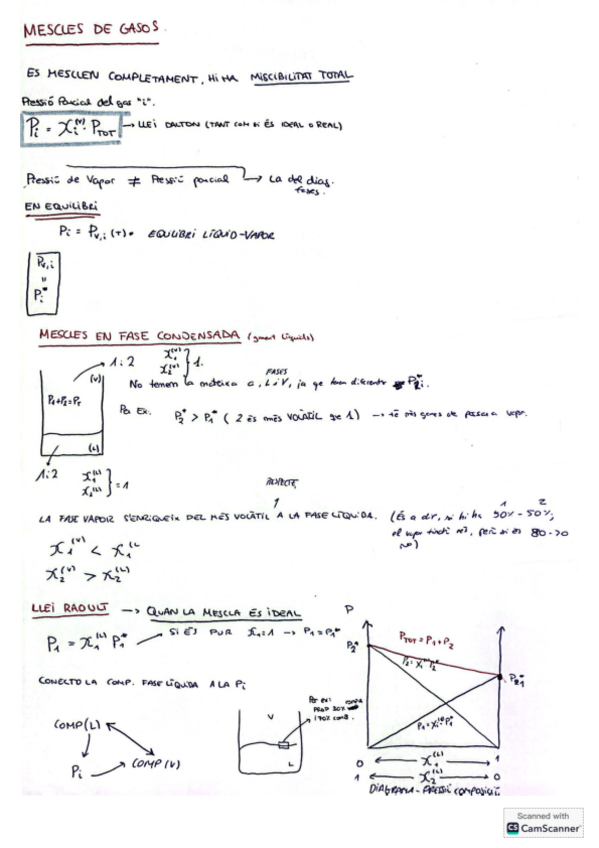 MESCLES DE GASOS.
ES MESCLEN COMPLETAMENT, HI HA MISCIBILITAT TOTAL
Pressió Parcial del gas "i".
Pi = Xi(V) · PTOT → LLEI DALTON (TANT COM SI ÉS IDEAL O REAL)
Pressió de Vapor ≠ Pressió parcial → La del diag. fases.
EN EQUILIBRI
Pi = Pv,i (T). EQUILIBRI LÍQUID-VAPOR
Pv,i
=
Pi*
MESCLES EN FASE CONDENSADA (líquids)
1 i 2 X1(V) X2(V) } 1.
(V)
P1+P2=PT
(L)
FASES
No tenem la mateixa a L i V, ja que tenen diferents P2i*.
Per Ex. P2* > P1* (2 és més VOLÀTIL que 1) → té més ganes de passar a vapor.
1 i 2 X1(L) X2(L) } =1
RESPECTE
LA FASE VAPOR S'ENRIQUEIX DEL MÉS VOLÀTIL A LA FASE LÍQUIDA. (És a dir, si hi ha 1 50% - 2 50%,
el vapor tindrà més, però si és 80-20
no)
X1(V) < X1(L
X2(V) > X2(L)
LLEI RAOULT → QUAN LA MESCLA ÉS IDEAL
P1 = X1(L) P1* → SI ÉS PUR X1=1 → P1=P1*
CONECTO LA COMP. FASE LÍQUIDA A LA Pi
COMP(L)
Pi → COMP(V)
V
L
Per ex:
PROP 30%
i 70%
P
P2*
PTOT = P1+P2
P2=X2(L)P2*
P1=X1(L)P1*
P21*
0 ← X1(L) → 1
1 ← X2(L) → 0
DIAGRAMA-PRESSIÓ COMPOSICIÓ
Scanned with
CS CamScanner